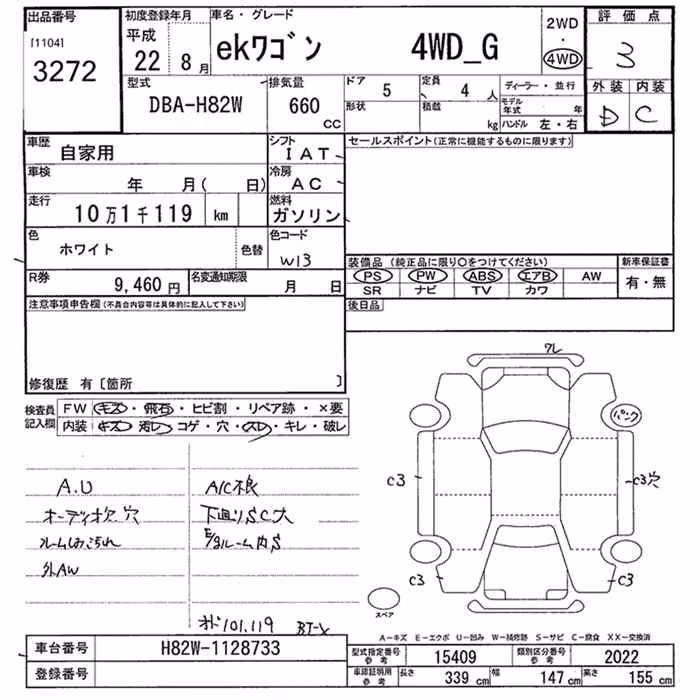 出品番号
[1104]
3272
初度登録年月
平成
22 年 8 月
車名・グレード
ekワゴン 4WD_G
2WD
・
4WD
評価点
3
外装 内装
D C
型式
DBA-H82W
排気量
660
CC
ドア
5
定員
4 人
形状
積載
kg
ディーラー・並行
モデル年式 年
ハンドル 左・右
車歴
自家用
シフト
IAT
車検
年 月( 日)
冷房
AC
走行
10万1千119 km
燃料
ガソリン
色
ホワイト
色替
色コード
W13
R券
9,460 円
名変通知期限
月 日
セールスポイント(正常に機能するものに限ります)
装備品 (純正品に限り○をつけてください)
PS PW ABS エアB AW
SR ナビ TV カワ
新車保証書
有・無
後日品
注意事項申告欄(不具合内容等は具体的に記入して下さい)
修復歴 有〔箇所 〕
検査員記入欄
FW キズ・飛石・ヒビ割・リペア跡・×要
内装 キズ・汚レ・コゲ・穴・スレ・キレ・破レ
A.U
オーディオ欠 穴
ルームしみ汚れ
外AW
A/C不良
下廻りSC大
E/gルーム内S
オド101,119
ワレ
パンク
C3
C3穴
C3
C3
スペア
A-キズ E-エクボ U-凹み W-補修跡 S-サビ C-腐食 XX-交換済
車台番号
H82W-1128733
登録番号
型式指定番号
参考
15409
類別区分番号
参考
2022
車庫証明用
参考
長さ 339 cm 幅 147 cm 高さ 155 cm